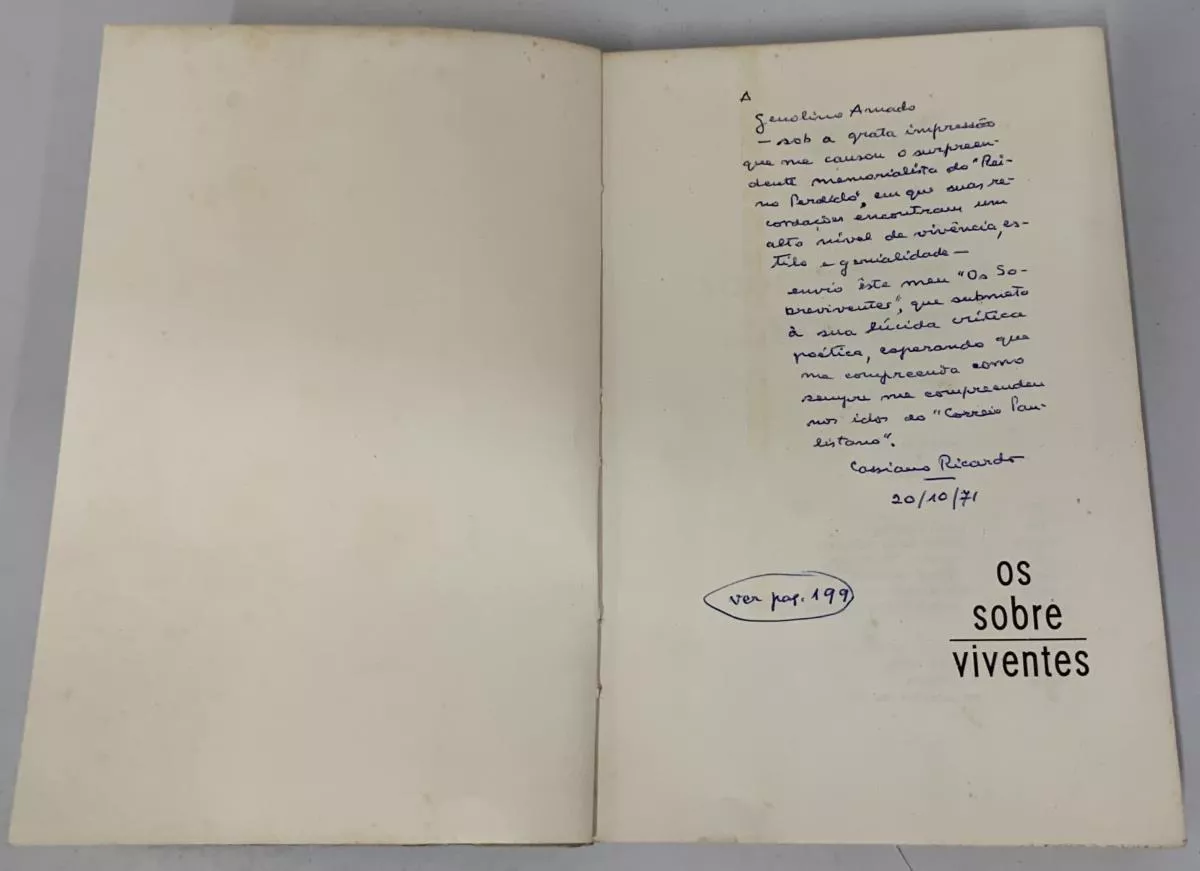 A
Genolino Amado
— sob a grata impressão
que me causou o surpreen-
dente memorialista do "Rei-
no Perdido", em que suas re-
cordações encontram um
alto nível de vivência, es-
tilo e genialidade —
envio êste meu "Os So-
breviventes", que submeto
à sua lúcida crítica
poética, esperando que
me compreenda como
sempre me compreendeu
nos idos do "Correio Pau-
listano".
Cassiano Ricardo
20/10/71
ver pag. 199
os
sobre
viventes